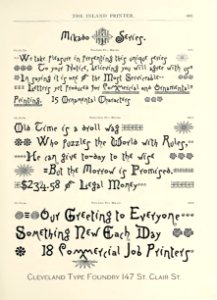 THE INLAND PRINTER.
Mikado Series.
We take Pleasure in Presenting this unique series
To your Notice, believing you will agree with us
In saying it is one of the Most Serviceable
Letters yet produced for Commercial and Ornamental
Printing. 15 Ornamental Characters
Old Time is a droll wag
Who Puzzles the World with Rules.
He can give to-day to the Wise
But the Morrow is Promised.
$234.58 of Legal Money
Our Greeting to Everyone
Something New Each Day
18 Commercial Job Printers
CLEVELAND TYPE FOUNDRY 147 ST. CLAIR ST.